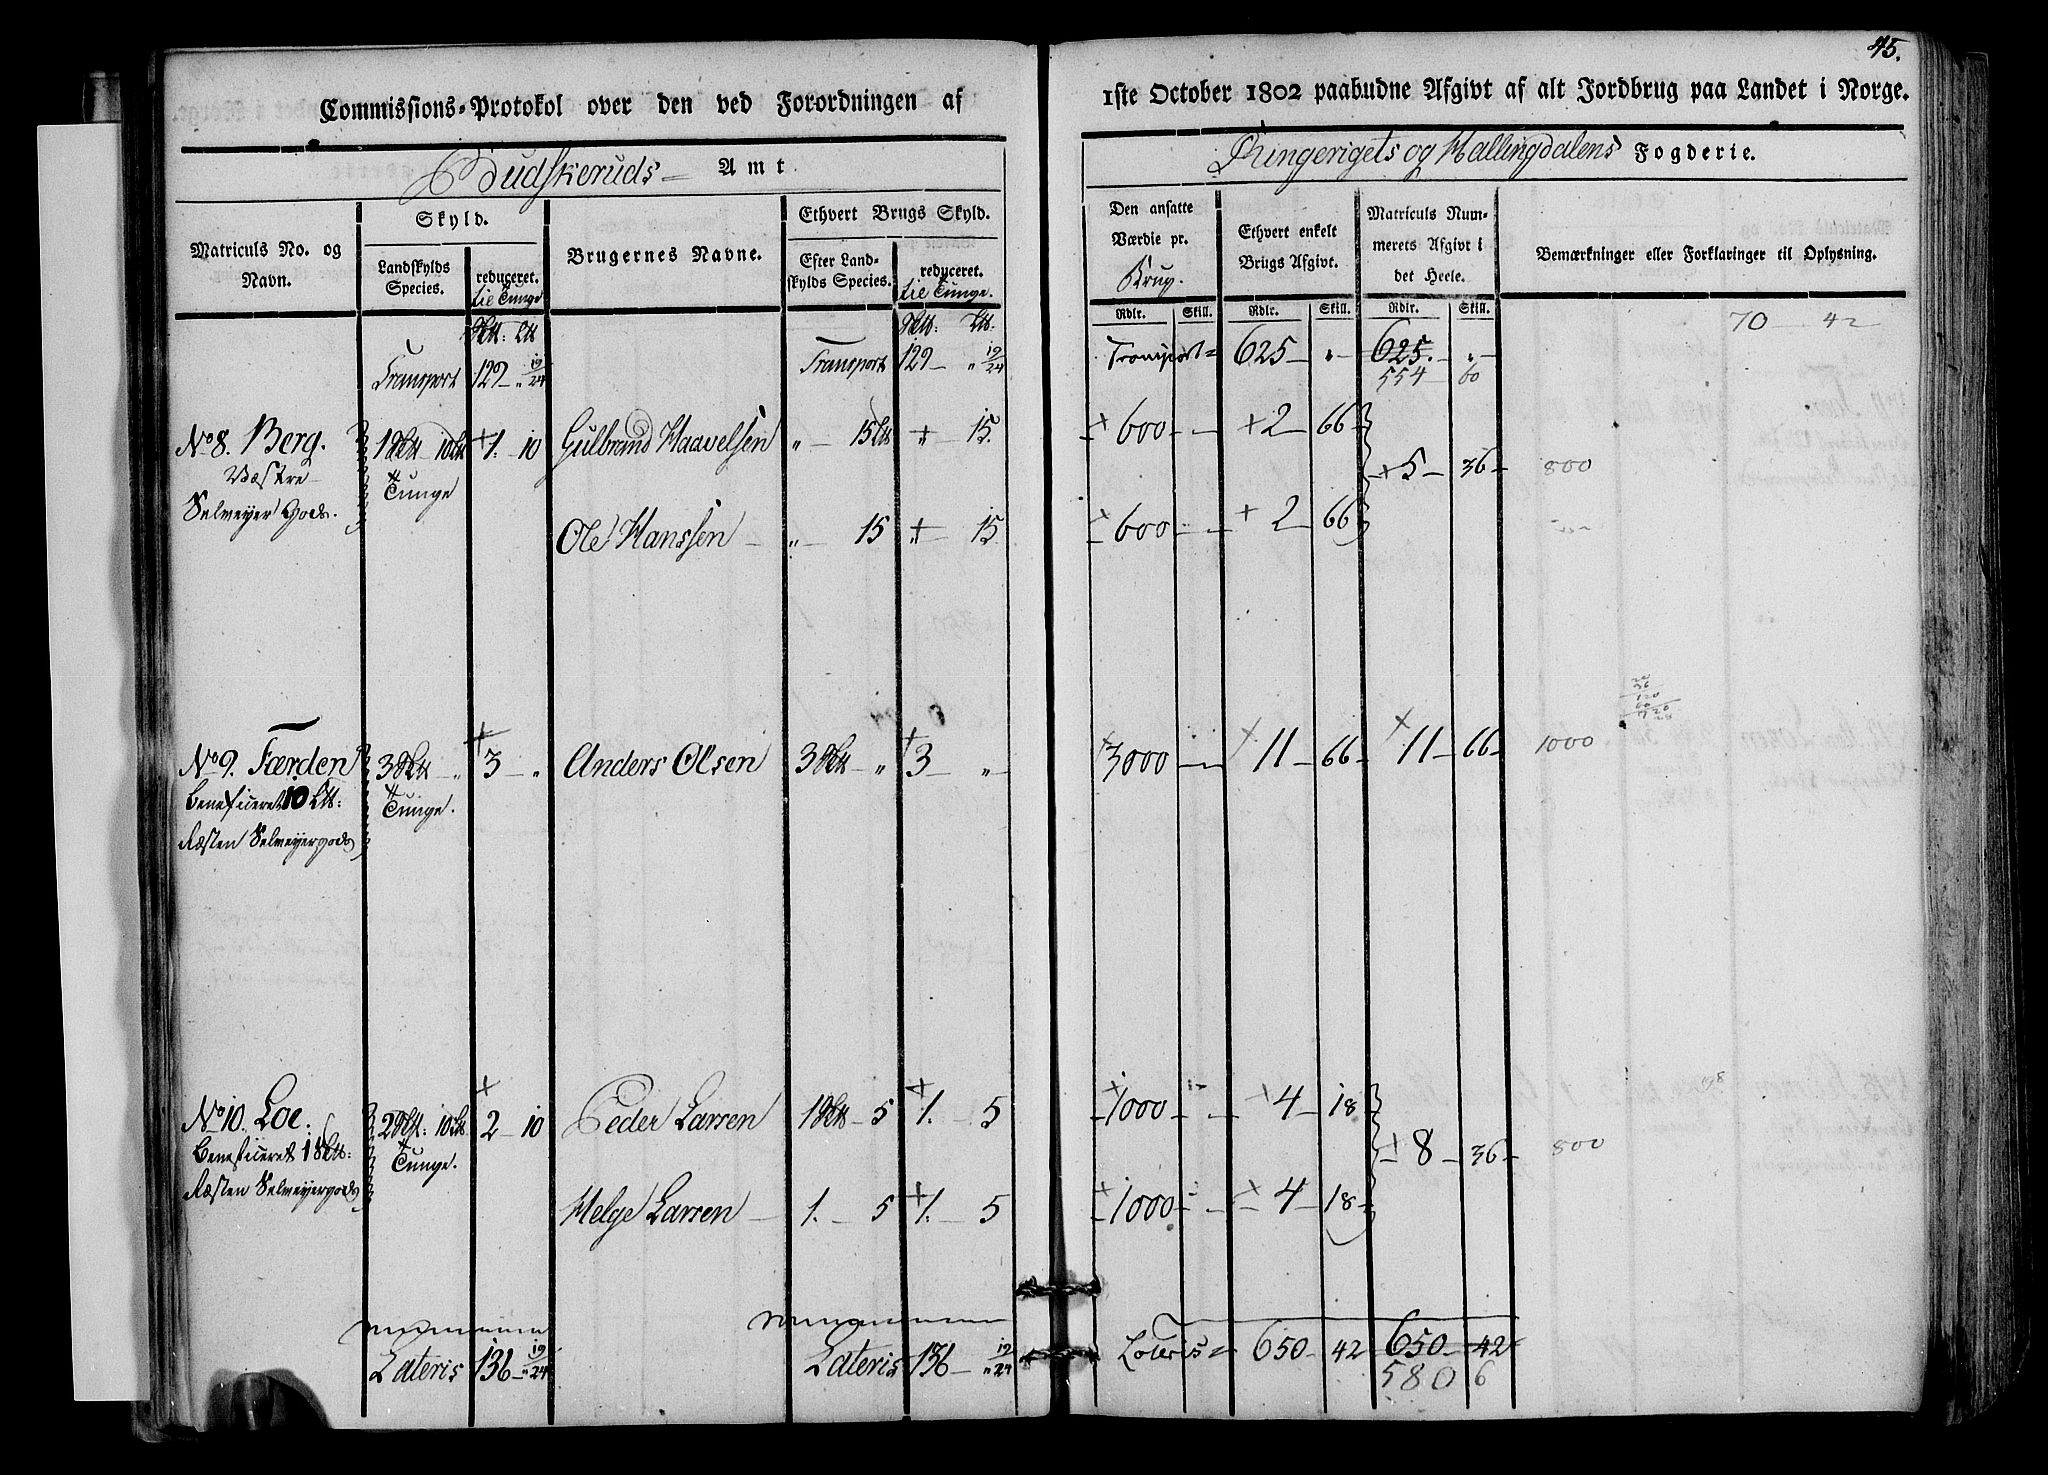 45.
Commissions-Protokol over den ved Forordningen af
1ste October 1802 paabudne Afgivt af alt Jordbrug paa Landet i Norge.
Budskeruds Amt.
Ringerigets og Hallingdalens Fogderie.
Matriculs No. og Navn.
Skyld.
Landskylds Species.
reduceret. til Tunge
Brugernes Navne.
Ethvert Brugs Skyld.
Efter Landskylds Species.
reduceret. til Tunge.
Den ansatte Værdie pr. Brug.
Ethvert enkelt Brugs Afgivt.
Matriculs Nummerets Afgivt i det Heele.
Bemærkninger eller Forklaringer til Oplysning.
Rdlr. Skill. Rdlr. Skill. Rdlr. Skill.
70 42
Transport 129 " 19/24 Transport 129 " 19/24 Transport 625 " 625. "
554 60
No 8. Berg. 1 Skt 10 Lt + 1. 10 Gulbrand Haavelsen " 15 Lt + " 15. + 600 + 2 66
Væstre Tunge + 5 36 800
Selmeyer Gods.
Ole Hanssen " 15 + " 15 + 600 + 2 66
No 9. Færden 3 Skt " + 3 " Anders Olsen 3 Skt " + 3 " + 3000 + 11 66 + 11 66 1000
Beneficeret 10 Lt: Tunge.
Ræsten Selmeyergods
No 10. Loe. 2 Skt: 10 Lt. + 2 10 Peder Larsen 1 Skt 5 + 1. 5 + 1000 + 4 18
Beneficeret 1 Skt: Tunge. + 8 36 800
Ræsten Selmeyergods
Helge Larsen 1. 5 + 1. 5 + 1000 + 4 18
Lateris 136 " 19/24 Lateris 136 " 19/24 Lateris 650 42 650 42
580 6